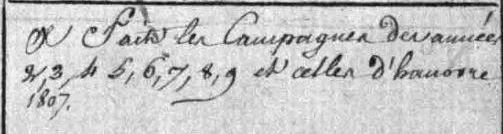 a Fait les Campagnes des années
2, 3, 4 5, 6, 7, 8, 9 et celles d'hanovre
1807.